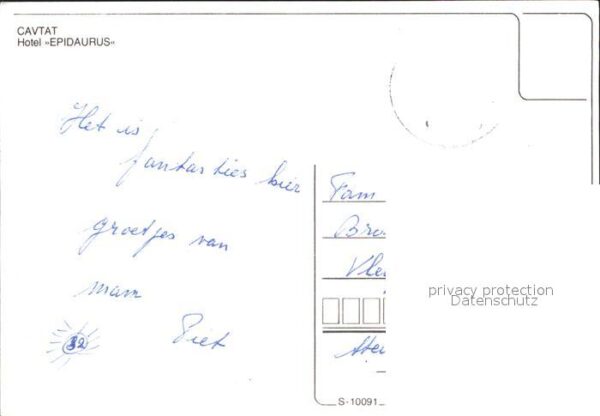 CAVTAT
Hotel »EPIDAURUS«
Het is
fantasties hier
groetjes van
mam
Piet
Fam
Bro
Vle
privacy protection
Datenschutz
S-10091